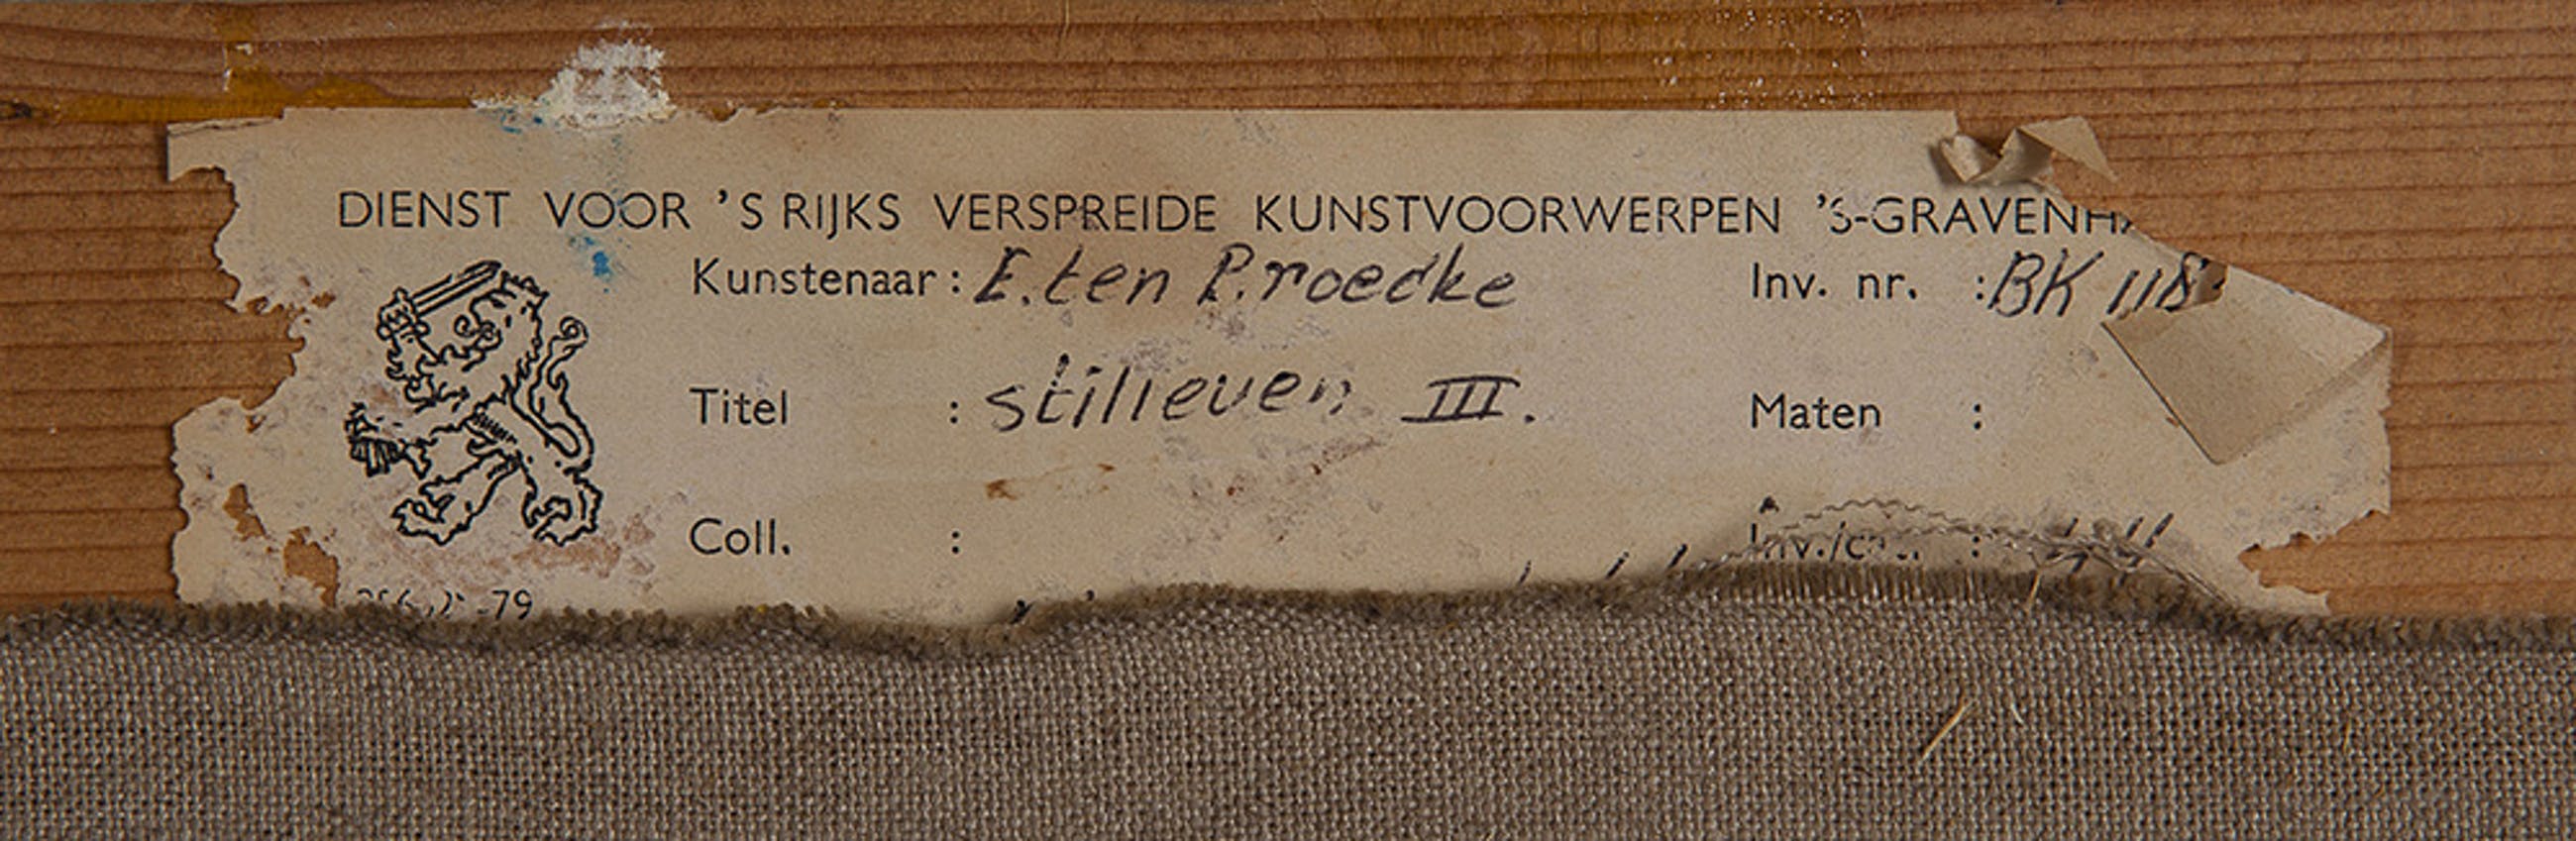 DIENST VOOR 'S RIJKS VERSPREIDE KUNSTVOORWERPEN 'S-GRAVENH
Kunstenaar: E.ten P.roedke Inv. nr. :BK 118
Titel : stilleven III. Maten :
Coll. : Inv./cat. :
-79